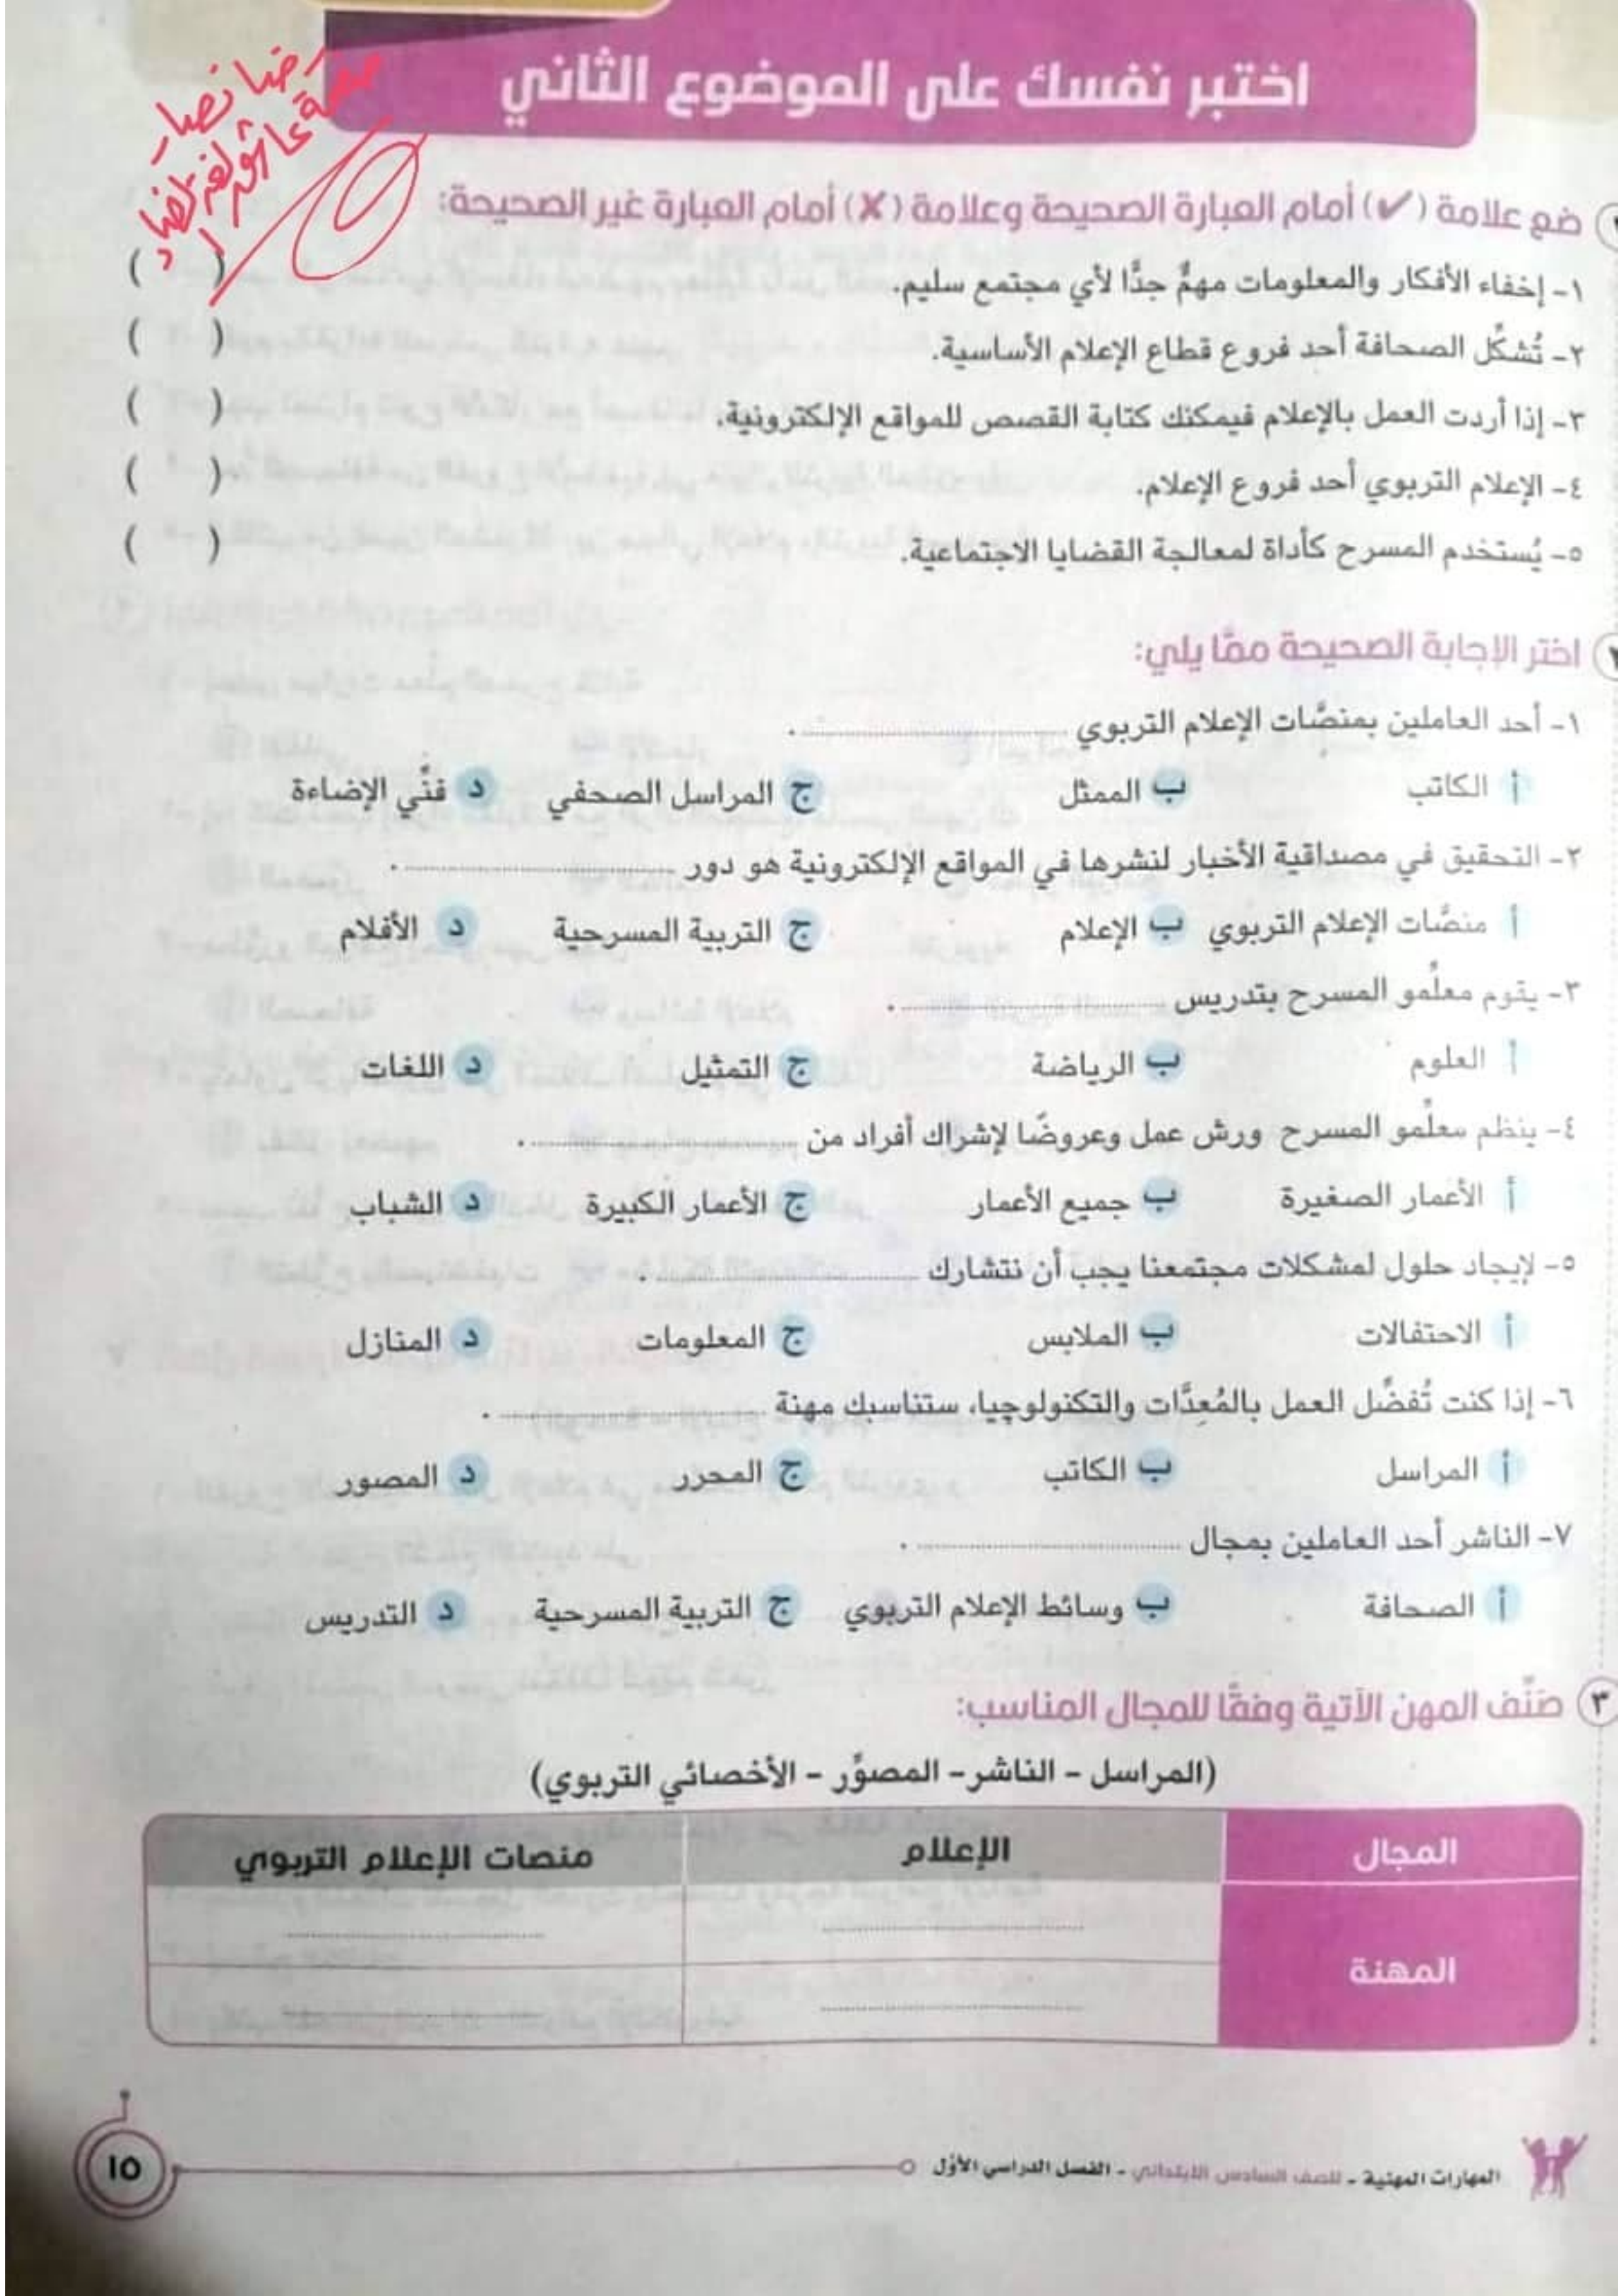 اختبر نفسك على الموضوع الثاني
ضع علامة (✓) أمام العبارة الصحيحة وعلامة (✗) أمام العبارة غير الصحيحة:
١- إخفاء الأفكار والمعلومات مهمٌّ جدًّا لأي مجتمع سليم. ( )
٢- تُشكِّل الصحافة أحد فروع قطاع الإعلام الأساسية. ( )
٣- إذا أردت العمل بالإعلام فيمكنك كتابة القصص للمواقع الإلكترونية. ( )
٤- الإعلام التربوي أحد فروع الإعلام. ( )
٥- يُستخدم المسرح كأداة لمعالجة القضايا الاجتماعية. ( )
اختر الإجابة الصحيحة ممّا يلي:
١- أحد العاملين بمنصَّات الإعلام التربوي ............ .
أ الكاتب ب الممثل ج المراسل الصحفي د فنِّي الإضاءة
٢- التحقيق في مصداقية الأخبار لنشرها في المواقع الإلكترونية هو دور ............ .
أ منصَّات الإعلام التربوي ب الإعلام ج التربية المسرحية د الأفلام
٣- يقوم معلِّمو المسرح بتدريس ............ .
أ العلوم ب الرياضة ج التمثيل د اللغات
٤- ينظم معلِّمو المسرح ورش عمل وعروضًا لإشراك أفراد من ............ .
أ الأعمار الصغيرة ب جميع الأعمار ج الأعمار الكبيرة د الشباب
٥- لإيجاد حلول لمشكلات مجتمعنا يجب أن نتشارك ............ .
أ الاحتفالات ب الملابس ج المعلومات د المنازل
٦- إذا كنت تُفضِّل العمل بالمُعِدَّات والتكنولوجيا، ستناسبك مهنة ............ .
أ المراسل ب الكاتب ج المحرر د المصور
٧- الناشر أحد العاملين بمجال ............ .
أ الصحافة ب وسائط الإعلام التربوي ج التربية المسرحية د التدريس
٣ صَنِّف المهن الآتية وفقًا للمجال المناسب:
(المراسل - الناشر - المصوِّر - الأخصائي التربوي)
المجال الإعلام منصات الإعلام التربوي
المهنة
المهارات المهنية - للصف السادس الابتدائي - الفصل الدراسي الأول
١٥